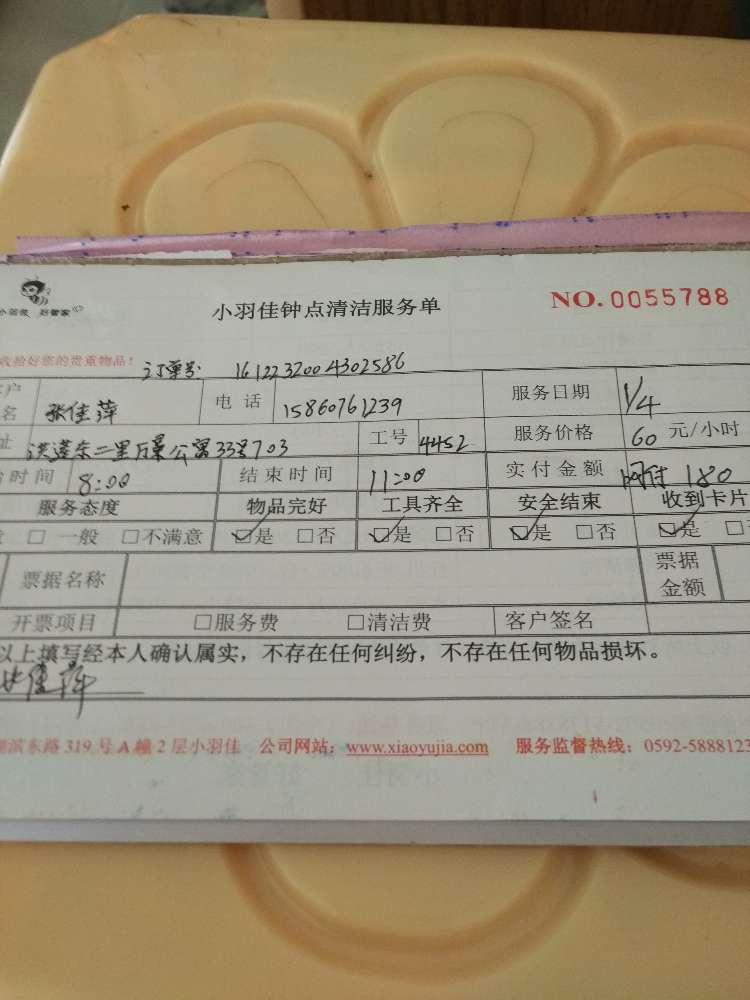 小羽佳 好管家
小羽佳钟点清洁服务单
NO. 0055788
收拾好您的贵重物品!
订单号: 1612232004302586
名 张佳萍 电话 15860761239 服务日期 1/4
址 洪莲东二里万景公寓33号703 工号 4452 服务价格 60 元/小时
时间 8:00 结束时间 11:00 实付金额 网付 180
服务态度 物品完好 工具齐全 安全结束 收到卡片
□ 一般 □不满意 ☑是 □否 ☑是 □否 ☑是 □否 ☑是
票据名称 票据金额
开票项目 □服务费 □清洁费 客户签名
以上填写经本人确认属实，不存在任何纠纷，不存在任何物品损坏。
张佳萍
湖滨东路 319 号 A 幢 2 层小羽佳 公司网站: www.xiaoyujia.com 服务监督热线: 0592-5888123